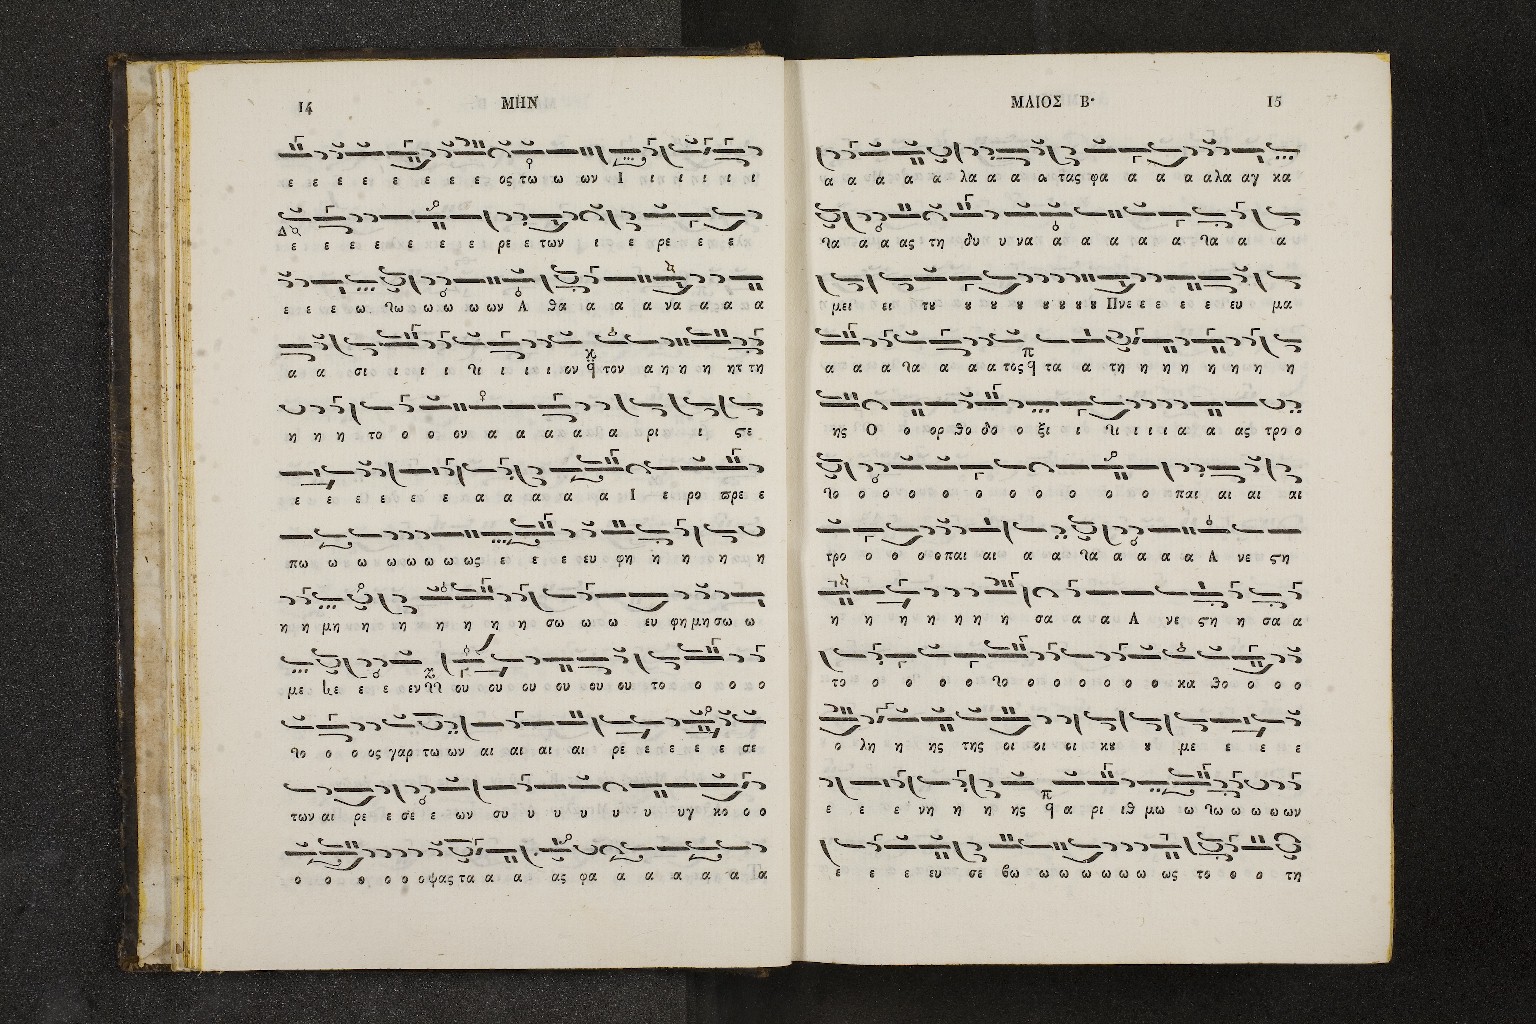 14 ΜΗΝ
ε ε ε ε ε ε ε ε ος τω ω ων Ι ι ι ι ι ι
ε ε ε ε ε ε ε ρε ε των ι ε ρε ε ε
ε ε ε ω ω ω ω ων Α θα α α α να α α α
α α σι ι ι ι ι ι ι ον τον α η η η ητ τη
η η η το ο ο ον α α α α α ρι ι ϛε
ε ε ε ε ε ε α α α α α Ι ε ρο πρε ε
πω ω ω ω ω ω ω ως ε ε ε ευ φη η η η η
η η μη η η η η η η σω ω ω ευ φη μη σω ω
με ε ε εν ου ου ου ου ου ου το ο ο ο
ο ο ος γαρ τω ων αι αι αι αι ρε ε ε ε ε σε
των αι ρε ε σε ε ων συ υ υ υ υ υ υγ κο ο ο
ο ο ο ο ο ο ψας τα α α ας φα α α α α α α
ΜΑΙΟΣ Β· 15
α α α α α λα α α α τας φα α α α αλα αγ κα
α α ας τη δυ υ να α α α α α α α
μει ει τȣ ȣ ȣ ȣ ȣ ȣ ȣ ȣ Πνε ε ε ε ε ευ μα
α α α α α α τος τα α τη η η η η η η η
ης Ο ο ορ θο δο ο ξι ι ι ι ι α α ας τρο ο
ο ο ο ο ο ο ο ο ο ο παι αι αι αι
τρο ο ο ο ο παι αι α α α α α α Α νε ϛη
η η η η η η η σα α α Α νε ϛη η σα α
το ο ο ο ο ο ο ο ο ο ο κα θο ο ο ο
ο λη η ης της οι οι οι κȣ ȣ με ε ε ε
ε ε ε νη η η ης α ρι ιθ μω ω ω ω ω ω ων
ε ε ε ευ σε βω ω ω ω ω ω ω ως το ο ο τη